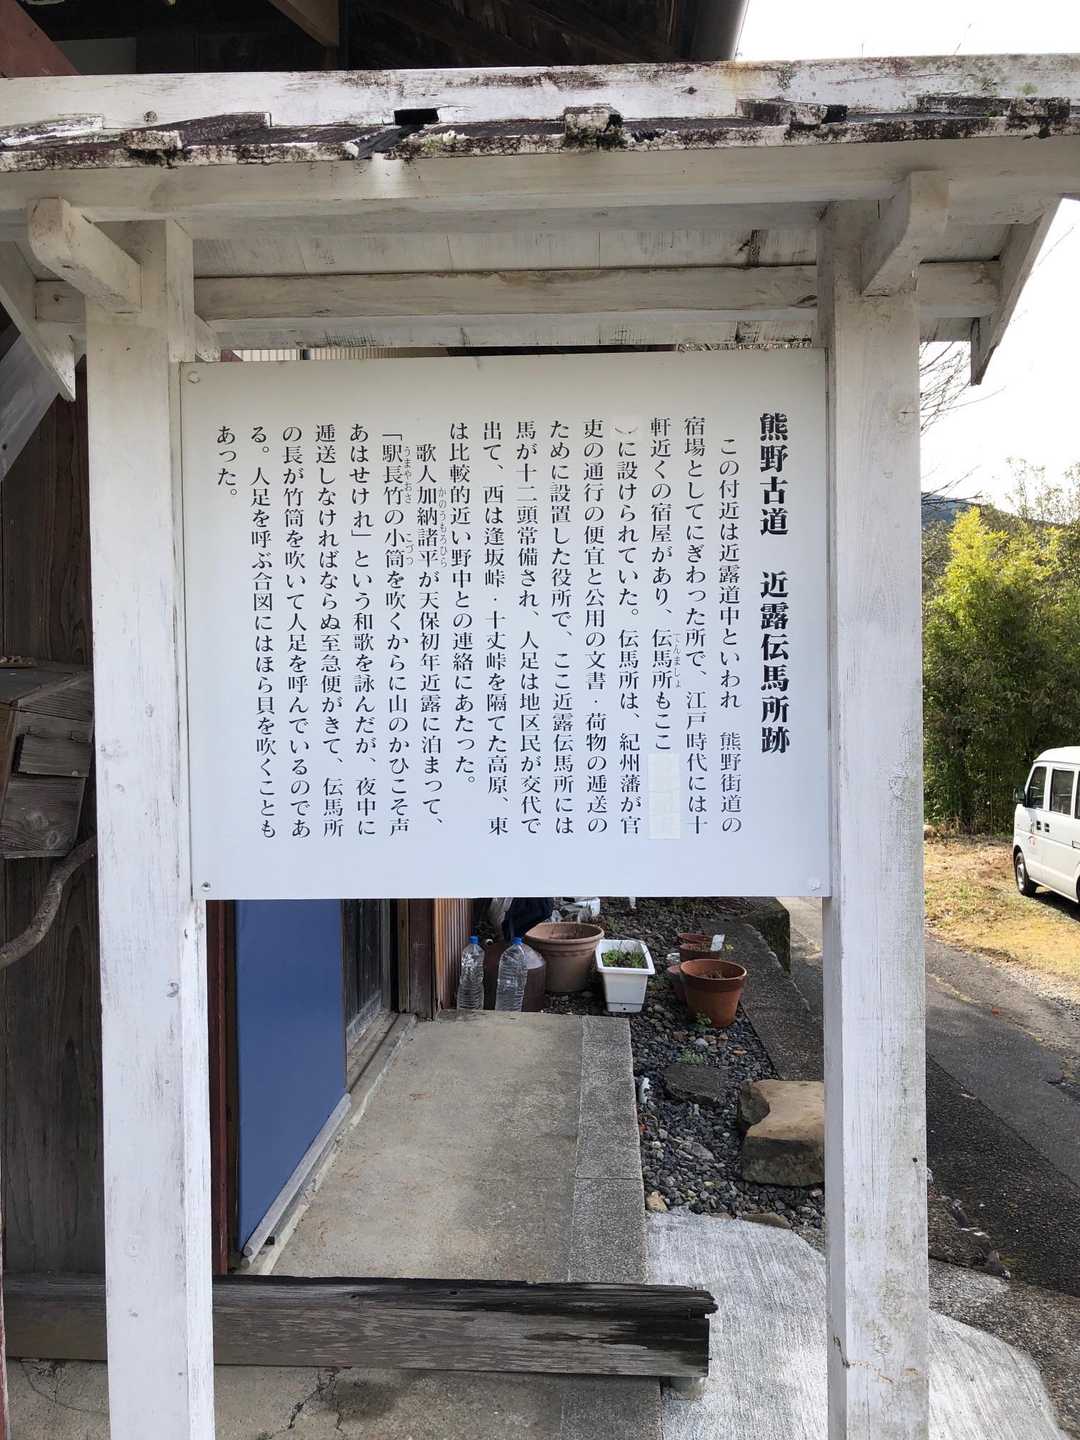 熊野古道　近露伝馬所跡
この付近は近露道中といわれ　熊野街道の
宿場としてにぎわった所で、江戸時代には十
軒近くの宿屋があり、伝馬所もここ
てんましょ
）に設けられていた。伝馬所は、紀州藩が官
吏の通行の便宜と公用の文書・荷物の逓送の
ために設置した役所で、ここ近露伝馬所には
馬が十二頭常備され、人足は地区民が交代で
出て、西は逢坂峠・十丈峠を隔てた高原、東
は比較的近い野中との連絡にあたった。
歌人加納諸平が天保初年近露に泊まって、
かのうもろひら
「駅長竹の小筒を吹くからに山のかひこそ声
うまやおさ　こづつ
あはせけれ」という和歌を詠んだが、夜中に
逓送しなければならぬ至急便がきて、伝馬所
の長が竹筒を吹いて人足を呼んでいるのであ
る。人足を呼ぶ合図にはほら貝を吹くことも
あった。